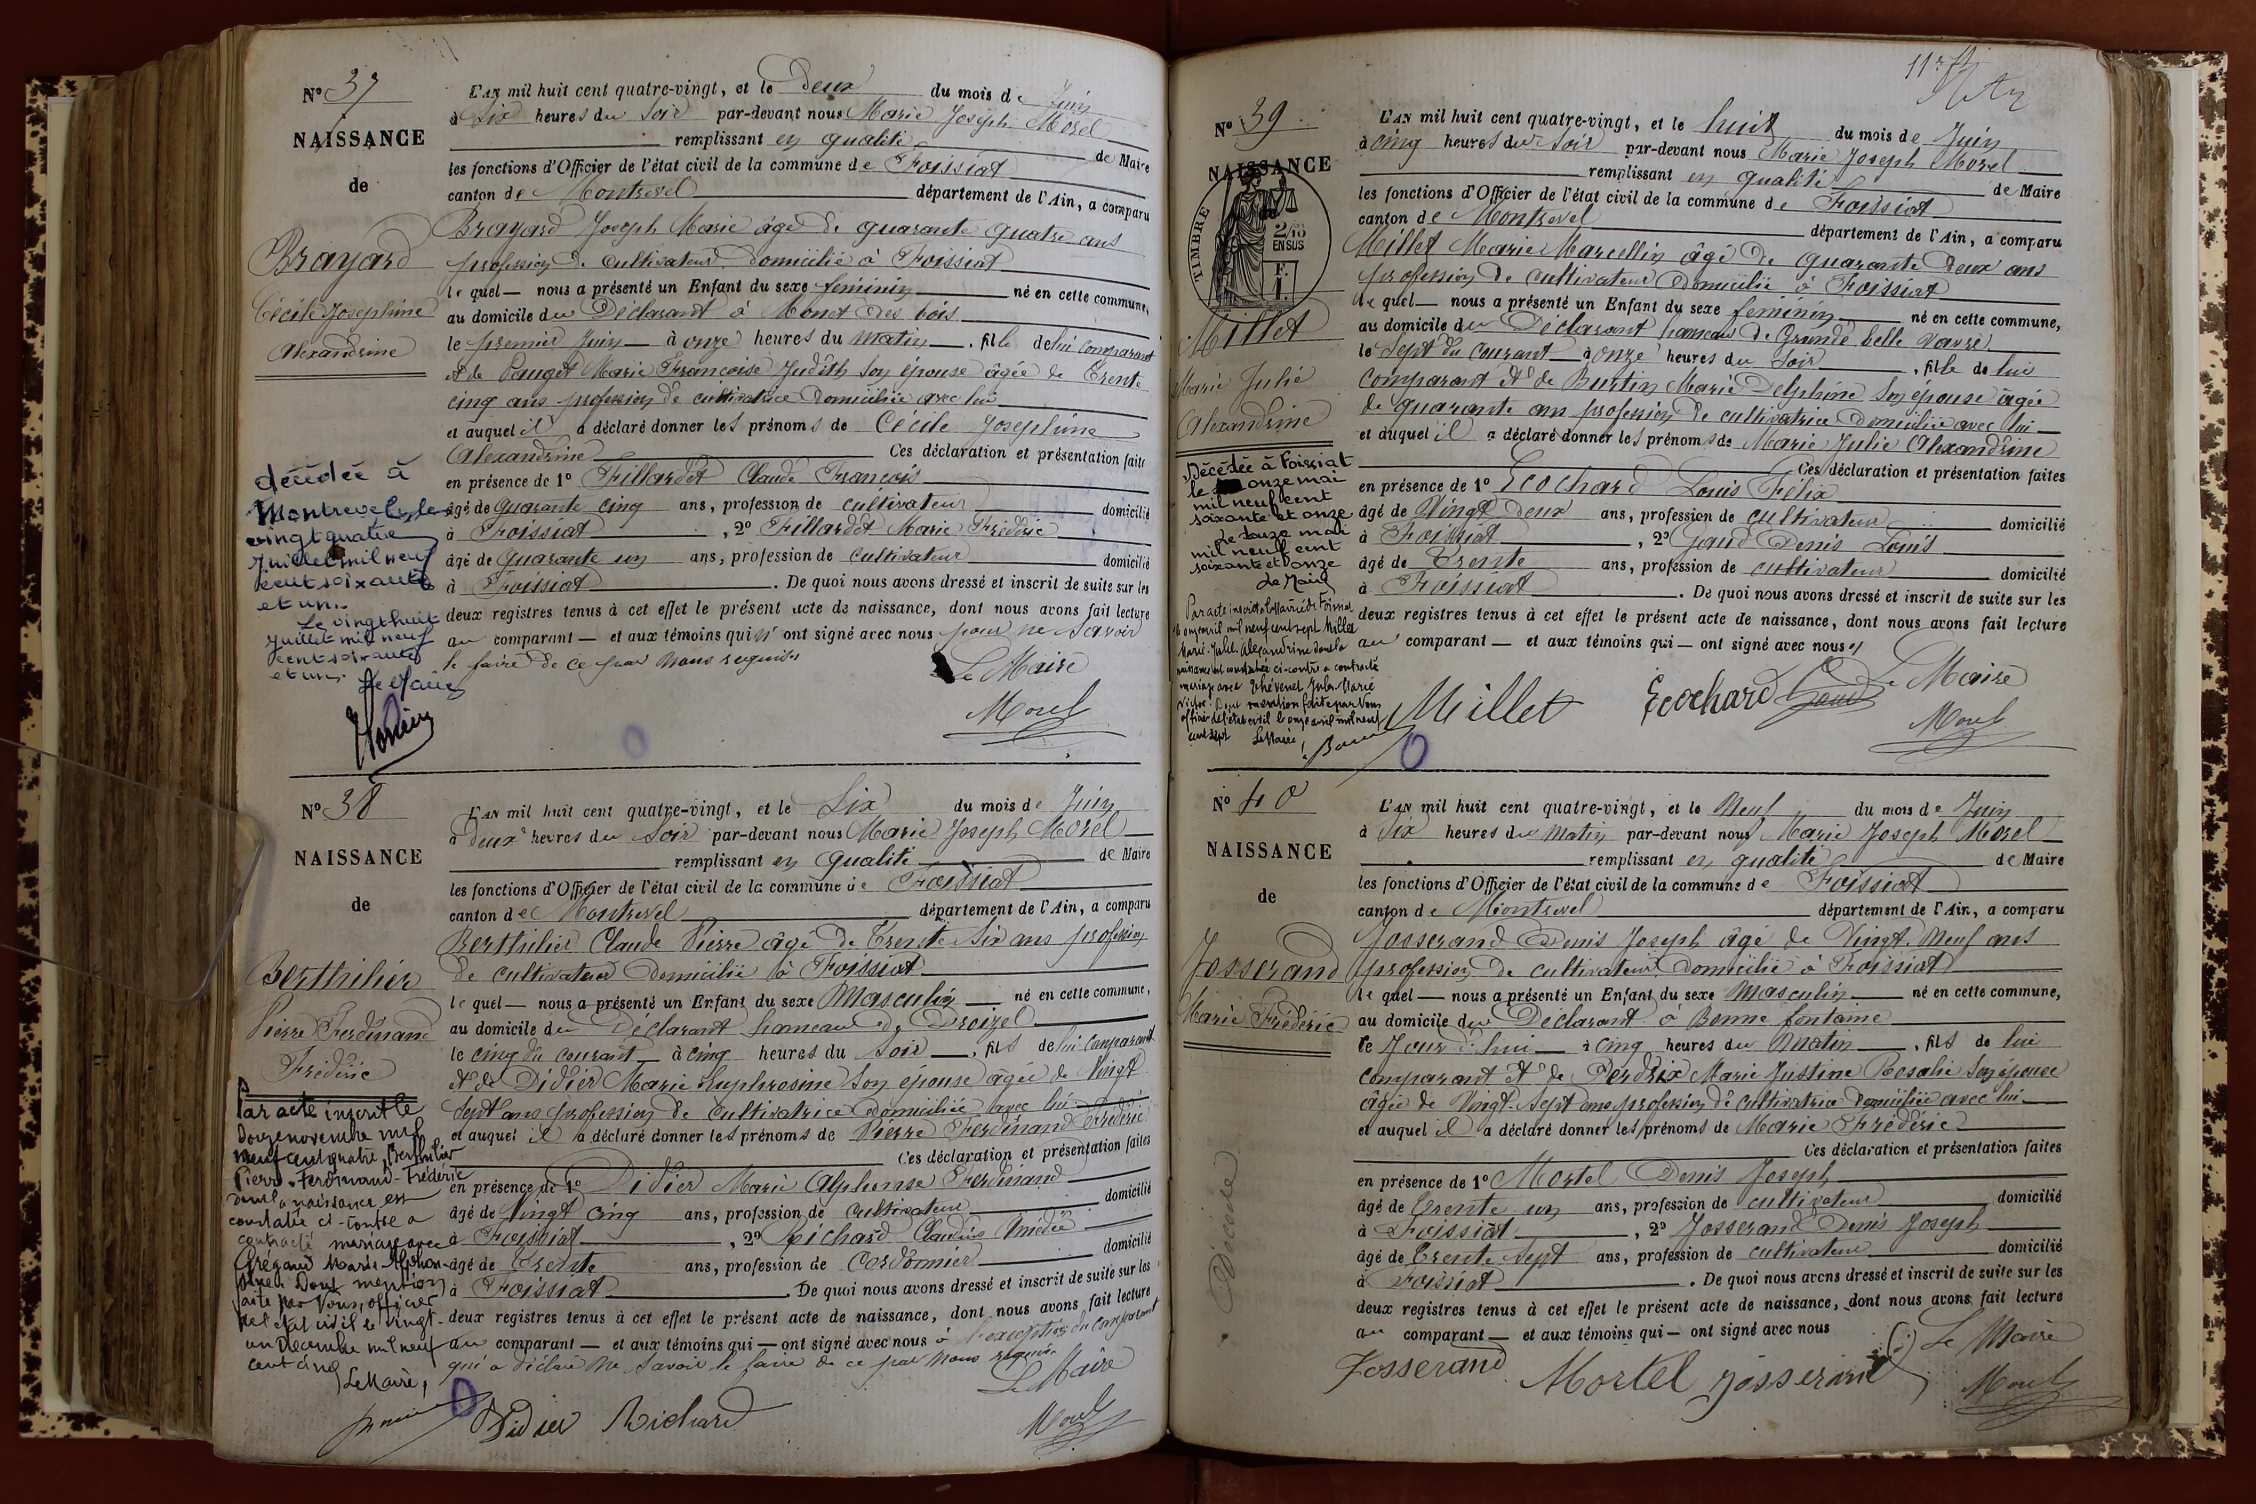 Nº 37
NAISSANCE
de
Brayard
Cécile Joséphine
Alexandrine
décédée à
Montrevel, le
vingt quatre
Juillet mil neuf
cent soixante
et un.
Le vingt huit
Juillet mil neuf
cent soixante
et un.
Le Maire
L'AN mil huit cent quatre-vingt, et le Deux du mois de Juin
à Six heures du Soir par-devant nous Marie Joseph Morel
remplissant en qualité de Maire
les fonctions d'Officier de l'état civil de la commune de Foissiat
canton de Montrevel département de l'Ain, a comparu
Brayard Joseph Marie âgé de quarante quatre ans
profession de cultivateur domicilié à Foissiat
le quel — nous a présenté un Enfant du sexe féminin né en cette commune,
au domicile du Déclarant à Monet des bois
le premier Juin à onze heures du matin . fille de lui comparant
et de Pauget Marie Françoise Judith son épouse âgée de Trente
cinq ans profession de cultivatrice domiciliée avec lui
et auquel il a déclaré donner les prénoms de Cécile Joséphine
Alexandrine Ces déclaration et présentation faites
en présence de 1º Fillardet Claude François
âgé de quarante cinq ans, profession de cultivateur domicilié
à Foissiat , 2º Fillardet Marie Frédéric
âgé de quarante un ans, profession de cultivateur domicilié
à Foissiat . De quoi nous avons dressé et inscrit de suite sur les
deux registres tenus à cet effet le présent acte de naissance, dont nous avons fait lecture
au comparant — et aux témoins qui n'ont signé avec nous pour ne savoir
le faire de ce par nous requis
Le Maire
Morel
Nº 38
NAISSANCE
de
Berthilier
Pierre Ferdinand
Frédéric
Par acte inscrit le
douze novembre mil
neuf cent quatre, Berthilier
Pierre-Ferdinand-Frédéric
dont la naissance est
constatée ci-contre a
contracté mariage avec
Grégaud Marie-Alphon-
sine. Dont mention
faite par Nous, officier
de l'état civil le vingt-
un Décembre mil neuf
cent cinq
Le Maire,
L'AN mil huit cent quatre-vingt, et le Six du mois de Juin
à deux heures du Soir par-devant nous Marie Joseph Morel
remplissant en qualité de Maire
les fonctions d'Officier de l'état civil de la commune de Foissiat
canton de Montrevel département de l'Ain, a comparu
Berthilier Claude Pierre âgé de Trente six ans profession
de cultivateur domicilié à Foissiat
le quel — nous a présenté un Enfant du sexe Masculin né en cette commune,
au domicile du Déclarant hameau de Droizel
le cinq du courant à cinq heures du Soir . fils de lui comparant
et de Didier Marie Euphrosine son épouse âgée de Vingt
sept ans profession de cultivatrice domiciliée avec lui
et auquel il a déclaré donner les prénoms de Pierre Ferdinand Frédéric
Ces déclaration et présentation faites
en présence de 1º Didier Marie Alphonse Ferdinand
âgé de Vingt cinq ans, profession de cultivateur domicilié
à Foissiat , 2º Richard Claudius Amédée
âgé de Trente ans, profession de Cordonnier domicilié
à Foissiat . De quoi nous avons dressé et inscrit de suite sur les
deux registres tenus à cet effet le présent acte de naissance, dont nous avons fait lecture
au comparant — et aux témoins qui — ont signé avec nous à l'exception du comparant
qui a déclaré ne savoir le faire de ce par nous requis
Le Maire
Didier Richard
Morel
Nº 39
NAISSANCE
TIMBRE
2/10
EN SUS
F.
1.
Millet
Marie Julie
Alexandrine
Décédée à Foissiat
le onze mai
mil neuf cent
soixante et onze
Le douze mai
mil neuf cent
soixante et onze
Le Maire
Par acte inscrit à la Mairie de Foissiat
le onze avril mil neuf cent sept Millet
Marie Julie Alexandrine dont la
naissance est constatée ci-contre a contracté
mariage avec Thévenet Jules Marie
Victor. Dont mention faite par Nous
officier de l'état civil le onze avril mil neuf
cent sept Le Maire,
L'AN mil huit cent quatre-vingt, et le huit du mois de Juin
à cinq heures du Soir par-devant nous Marie Joseph Morel
remplissant en qualité de Maire
les fonctions d'Officier de l'état civil de la commune de Foissiat
canton de Montrevel département de l'Ain, a comparu
Millet Marie Marcellin âgé de quarante deux ans
profession de cultivateur domicilié à Foissiat
le quel — nous a présenté un Enfant du sexe féminin né en cette commune,
au domicile du Déclarant hameau de Grande belle vavre
le Sept du courant à onze heures du Soir . fille de lui
comparant et de Burtin Marie Delphine son épouse âgée
de quarante ans profession de cultivatrice domiciliée avec lui
et auquel il a déclaré donner les prénoms de Marie Julie Alexandrine
Ces déclaration et présentation faites
en présence de 1º Ecochard Louis Félix
âgé de Vingt deux ans, profession de cultivateur domicilié
à Foissiat , 2º Gaud Denis Louis
âgé de Trente ans, profession de cultivateur domicilié
à Foissiat . De quoi nous avons dressé et inscrit de suite sur les
deux registres tenus à cet effet le présent acte de naissance, dont nous avons fait lecture
au comparant — et aux témoins qui — ont signé avec nous
Le Maire
Millet Ecochard Gaud
Morel
Nº 40
NAISSANCE
de
Josserand
Marie Frédéric
Décédé
L'AN mil huit cent quatre-vingt, et le Neuf du mois de Juin
à Six heures du Matin par-devant nous Marie Joseph Morel
remplissant en qualité de Maire
les fonctions d'Officier de l'état civil de la commune de Foissiat
canton de Montrevel département de l'Ain, a comparu
Josserand Denis Joseph âgé de Vingt-Neuf ans
profession de cultivateur domicilié à Foissiat
le quel — nous a présenté un Enfant du sexe Masculin né en cette commune,
au domicile du Déclarant à Bonne fontaine
le Jour d'hui à cinq heures du Matin . fils de lui
comparant et de Perdrix Marie Justine Rosalie son épouse
âgée de Vingt-Sept ans profession de cultivatrice domiciliée avec lui
et auquel il a déclaré donner les prénoms de Marie Frédéric
Ces déclaration et présentation faites
en présence de 1º Mortel Denis Joseph
âgé de Trente un ans, profession de cultivateur domicilié
à Foissiat , 2º Josserand Denis Joseph
âgé de Trente Sept ans, profession de cultivateur domicilié
à Foissiat . De quoi nous avons dressé et inscrit de suite sur les
deux registres tenus à cet effet le présent acte de naissance, dont nous avons fait lecture
au comparant — et aux témoins qui — ont signé avec nous
Le Maire
Josserand Mortel Josserand
Morel